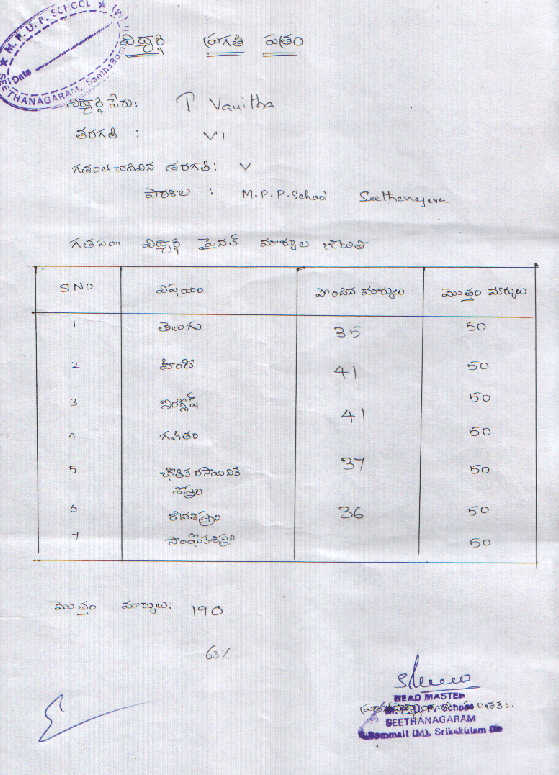 M.P.U.P. SCHOOL
Date
SEETHANAGARAM, Santha
విద్యార్థి ప్రగతి పత్రం
విద్యార్థి పేరు: P Vanitha
తరగతి : VI
గతంలో చదివిన తరగతి: V
పాఠశాల : M.P.P. School Seethanagaram
గతేడాది విద్యార్థి ఫైనల్ మార్కుల
S NO విషయం పొందిన మార్కులు మొత్తం మార్కులు
1 తెలుగు 35 50
2 హిందీ 41 50
3 ఇంగ్లీష్ 41 50
4 గణితం 50
5 భౌతిక రసాయనిక 37 50
శాస్త్రం
6 జీవశాస్త్రం 36 50
7 సాంఘికశాస్త్రం 50
మొత్తం మార్కులు: 190
63%
HEAD MASTER
M.P.U.P. School
SEETHANAGARAM
Bommali (M), Srikakulam Dt